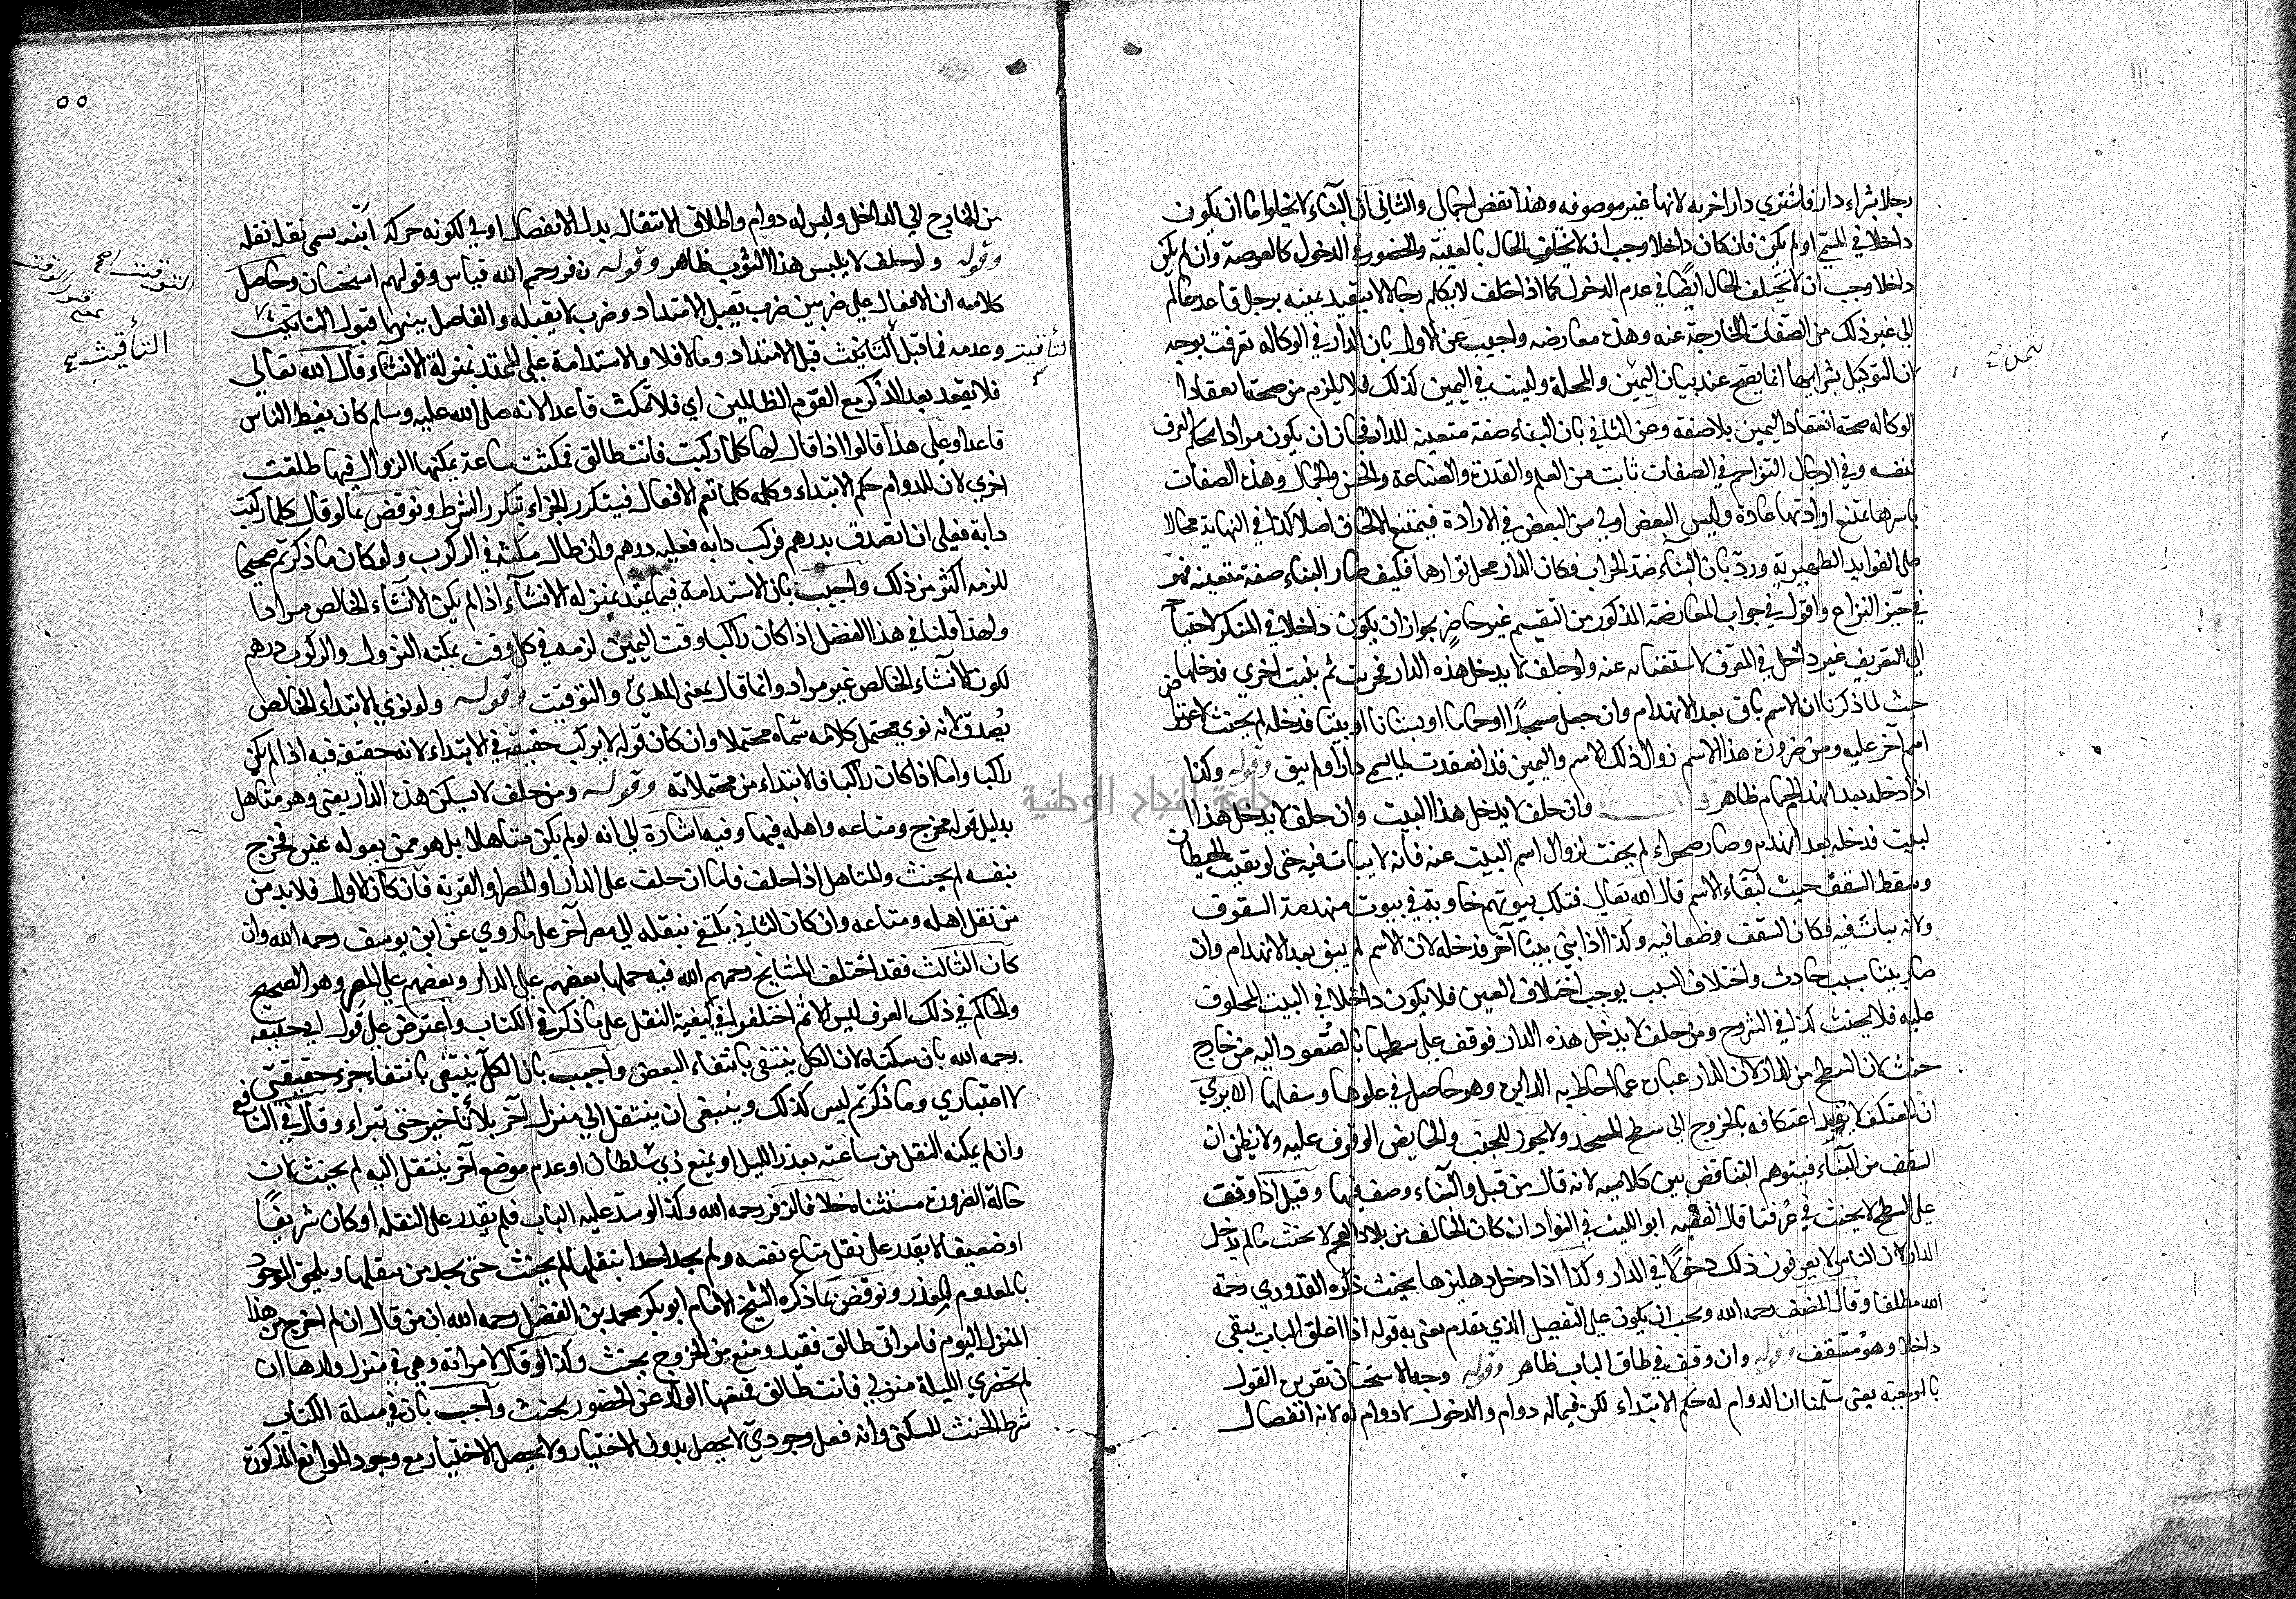 رجلا بشراء دار فاشتري دار اخربه لانها غير موصوفه وهذا نقض اجمالي والثاني ان البناء لا يخلوا ما ان يكون
داخلا في المسمي اولم يكن فان كان داخلا وجب ان لا يختلف الحال بالغيبة والحضور في الدخول كالعرصة وان لم يكن
داخلا وجب ان لا يختلف الحال ايضا في عدم الدخول كما اذا حلف لا يكلم رجلا لا يتقيد يمينه برجل قاعد عالم
الي غير ذلك من الصفات الخارجة عنه وهذه معارضه واجيب عن الاول بان الدار في الوكالة تعرفت بوجه
لان التوكيل بشرائها انما يصح عند بيان الثمن والمحلة وليست في اليمين كذلك فلا يلزم من صحة انعقاد
الوكاله صحة انعقاد اليمين بلا صفة وعن الثاني بان البناء صفة متعينه للدار فجاز ان يكون مرادا بحكم العرف
لنفسه وفي الرجال التزاحم في الصفات ثابت من العلم والقدرة والصناعة والحسن والجمال وهذه الصفات
باسرها يمتنع ارادتها عادة وليس البعض اولي من البعض في الارادة فيمتنع الالحاق اصلا كذا في النهاية محالا
علي الفوايد الظهيرية وردّ بان البناء ضد الخراب فكان الدار محل تواردهما فكيف صار البناء صفة متعينه فهو
في حيّز النزاع واقول في جواب المعارضة المذكور من التقسيم غير حاصر بجواز ان يكون داخلا في المنكر لاحتياج
الي التعريف غير داخل في المعرف لاستغنائه عنه ولو حلف لا يدخل هذه الدار فخربت ثم بنيت اخري فدخلها
حنث لما ذكرنا ان الاسم باق بعد الانهدام وان جعل مسجدا او حماما او بستانا او بيتا فدخله لم يحنث لاعتراض
اسم آخر عليه ومن ضرورة هذا الاسم زوال ذلك الاسم واليمين قد انعقدت عليها باسم دار ولم يبق وقوله وكذا
اذا دخله بعد انهدام الحمام ظاهر قال وان حلف لا يدخل هذا البيت وان حلف لا يدخل هذا ا
لبيت فدخله بعد انهدم وصار صحراء لم يحنث لزوال اسم البيت عنه فانه لا يبات فيه حتي لو بقيت الحيطان
وسقط السقف حنث لبقاء الاسم قال الله تعالي فتلك بيوتهم خاوية في بيوت منهدمة السقوف
ولانه يبات فيه فكان السقف وصفا فيه وكذا اذا بني بيتا آخر فدخله لان الاسم لم يبق بعد الانهدام وان
صار بيتا بسبب حادث واختلاف السبب يوجب اختلاف العين فلا يكون داخلا في البيت المحلوف
عليه فلا يحنث كذا في الشروح ومن حلف لا يدخل هذه الدار فوقف علي سطحها بالصعود اليه من خارج
حنث لان السطح من الدار لان الدار عبارة عما احاط به الدائره وهو حاصل في علوها وسفلها الا يري
ان المعتكف لا يفسد اعتكافه بالخروج الي سطح المسجد ولا يجوز للجنب والحايض الوقوف عليه ولا يظن ان
السقف من البناء فيتوهم التناقض بين كلاميه لانه قال من قبل والبناء وصف فيها وقيل اذا وقف
علي السطح لا يحنث في عرفنا قال الفقيه ابو الليث في النوادر ان كان الحالف من بلاد العجم لا يحنث ما لم يدخل
الدار لان الناس لا يعرفون ذلك دخولا في الدار وكذا اذا دخل دهليزها يحنث ذكره القدوري رحمه
الله مطلقا وقال المصنف رحمه الله ويجب ان يكون علي التفصيل الذي تقدم يعني به قوله اذا اغلق الباب يبقي
داخلا وهو مسقف وقوله وان وقف في طاق الباب ظاهر وقوله وجه الاستحسان تقريره القول
بالموجبة يعني سلمنا ان الدوام له حكم الابتداء لكن فيما له دوام والدخول لا دوام له لانه انفصال
الثمن
٥٥
من الخارج الي الداخل وليس له دوام واطلاق الانتقال بدل الانفصال اولي لكونه حركة اينيه سمي نقل نقله
وقوله ولو حلف لا يلبس هذا الثوب ظاهر وقوله زفر رحمه الله قياس وقولهم استحسان وحاصل
كلامه ان الافعال علي ضربين ضرب يقبل الامتداد وضرب لا يقبله والفاصل بينهما قبول التاقيت
وعدمه فما قبل التاقيت قبل الامتداد وما لا فلا والاستدامة علي الممتد بمنزلة الانشاء قال الله تعالي
فلا تقعد بعد الذكري مع القوم الظالمين اي فلا تمكث قاعدا لانه صلي الله عليه وسلم كان يعظ الناس
قاعدا وعلي هذا قالوا اذا قال لها كلما ركبت فانت طالق فمكثت ساعة يمكنها النزول فيها طلقت
اخري لان للدوام حكم الابتداء وكلمة كلما تعم الافعال فيتكرر الجزاء بتكرر الشرط ونوقض بما لو قال كلما ركبت
دابة فعلي ان اتصدق بدرهم فركب دابه فعليه درهم وان طال مكثه في الركوب ولو كان ما ذكرتم صحيحا
للزمه اكثر من ذلك واجيب بان الاستدامة فيما يمتد بمنزله الانشاء اذا لم يكن الانشاء الخالص مرادا
ولهذا قلنا في هذا الفصل اذا كان راكبا وقت اليمين لزمه في كل وقت يمكنه النزول والركوب درهم
لكون الانشاء الخالص غير مراد وانما قال بمعني المدة والتوقيت وقوله ولو نوي الابتداء الخالص
يُصدق لانه نوي محتمل كلامه سماه محتملا وان كان قوله لا يركب حقيقة في الابتداء لانه حقيقة فيه اذا لم يكن
راكبا واما اذا كان راكبا فالابتداء من محتملاته وقوله ومن حلف لا يسكن هذه الدار يعني وهو متاهل
بدليل قوله فخرج ومتاعه واهله فيها وفيه اشارة الي انه لو لم يكن متاهلا بل هو ممن يعوله غيره فخرج
بنفسه لم يحنث والمتاهل اذا حلف فاما ان حلف علي الدار او المصر او القرية فان كان الاول فلا بد من
من نقل اهله ومتاعه وان كان الثاني يكتفي بنقله الي مصر آخر علي ما روي عن ابي يوسف رحمه الله وان
كان الثالث فقد اختلف المشايخ رحمهم الله فيه حملها بعضهم علي الدار وبعضهم علي المصر وهو الصحيح
والحاكم في ذلك العرف ليس الا ثم اختلفوا في كيفية النقل علي ما ذكر في الكتاب واعترض علي قول ابي حنيفه
رحمه الله بان سكناه لان الكل ينتفي بانتفاء البعض واجيب بان الكل ينتفي بانتفاء جزء حقيقي
لا اعتباري وما ذكرتم ليس كذلك وينبغي ان ينتقل الي منزل آخر بلا تأخير حتي تبراء وقال في النافع
وان لم يمكنه النقل من ساعته بعذر الليل او يمنع ذي سلطان او عدم موضع آخر ينتقل اليه لم يحنث لان
حالة الضرورة مستثناه خلافا لزفر رحمه الله وكذا لو سدّ عليه الباب فلم يقدر علي النقله او كان شريفًا
او ضعيفا لا يقدر علي نقل متاع نفسه ولم يجد احدا ينقلها لم يحنث حتي يجد من ينقلها ويلحق الموجود
بالمعدوم للعذر ونوقض بما ذكره الشيخ الامام ابو بكر محمد بن الفضل رحمه الله ان من قال ان لم اخرج من هذا
المنزل اليوم فامراتي طالق فقيد ومنع من الخروج يحنث وكذا لو قال لامراته وهي في منزل والدها ان
لم تحضري الليلة منزلي فانت طالق فمنعها الوالد عن الحضور يحنث واجيب بان في مسلة الكتاب
شرط الحنث للسكني وانه فعل وجودي لا يحصل بدون الاختيار ولا يحصل الاختيار مع وجود الموانع المذكورة
التأقيت
التوقيت
التأقيت
جامعة النجاح الوطنية